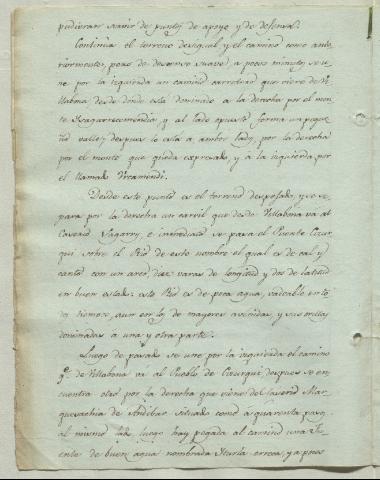 pudieran servir de puntos de apoyo y de defensa.
Continúa el terreno desigual y el camino como ante
riormente, pero de descenso suave: a pocos minutos se u
ne por la izquierda un camino carretero que viene de Vi
llabona desde donde está dominado a la derecha por el mon
te y al lado opuesto forma un peque
ño valle, despues lo está a ambos lados, por la derecha
por el monte que queda expresado, y á la izquierda por
el llamado Urcamendi.
Desde este punto es el terreno despejado, y se se
para por la derecha un carril que desde Villabona va al
Caserio Lagarry, e inmediato se pasa el Puente Cizur
quil sobre el Rio de este nombre el qual es de cal y
canto con un arco, diez varas de longitud y dos de latitud
en buen estado: este Rio es de poca agua, vadeable en to
do tiempo, aun en los de mayores avenidas, y sus orillas
dominadas a una y otra parte.
Luego de pasado se une por la izquierda el camino
q.e de Villabona va al Pueblo de Cizurquil despues se en
cuentra otro por la derecha que viene del Caserio Mar
de Andoain situado como a quarenta pasos
al mismo lado, luego hay pegada al camino una Fu
ente de buen agua nombrada Iturla erreca, y a poco